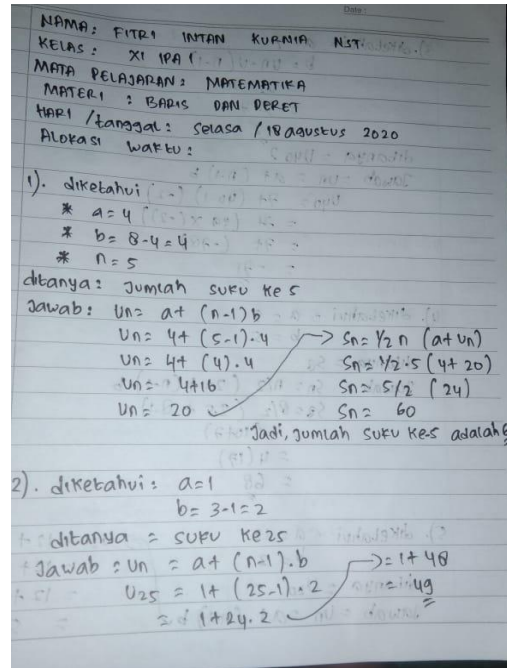 Date :
NAMA : FITRI INTAN KURNIA NST.
KELAS : XI IPA 1
MATA PELAJARAN : MATEMATIKA
MATERI : BARIS DAN DERET
HARI / tanggal : Selasa / 18 agustus 2020
ALOKASI WAKTU :
1). diketahui
* a = 4
* b = 8-4 = 4
* n = 5
ditanya : Jumlah suku ke 5
Jawab : Un = a + (n-1) b
Un = 4 + (5-1) . 4
Un = 4 + (4) . 4
Un = 4+16
Un = 20
Sn = 1/2 n (a+Un)
Sn = 1/2 . 5 (4 + 20)
Sn = 5/2 (24)
Sn = 60
Jadi, Jumlah suku ke-5 adalah
2). diketahui : a = 1
b = 3-1 = 2
ditanya = suku ke 25
Jawab : Un = a + (n-1) . b
U25 = 1 + (25-1) . 2
= 1 + 24 . 2
= 1 + 48
= 49